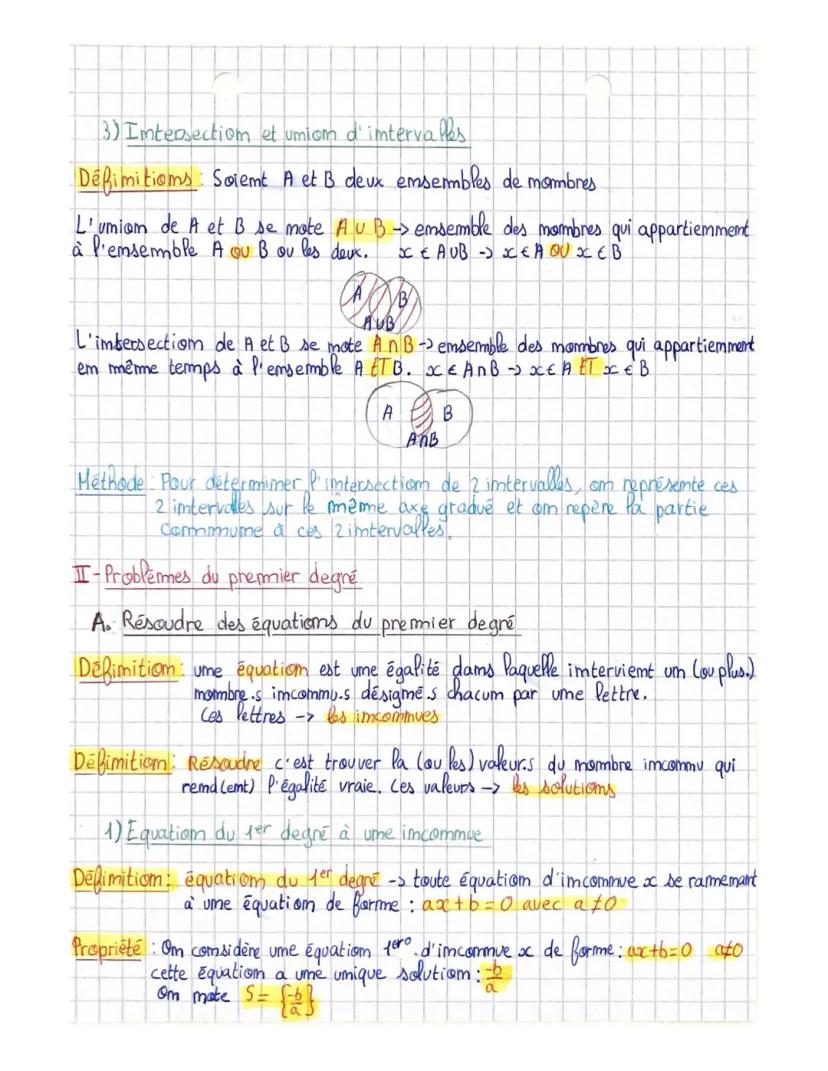 3) Intersection et union d'intervalles
Définitions : Soient A et B deux ensembles de nombres
L'union de A et B se note A ∪ B -> ensemble des nombres qui appartiennent
à l'ensemble A ou B ou les deux. x ∈ A∪B -> x ∈ A OU x ∈ B
A B
A∪B
L'intersection de A et B se note A ∩ B -> ensemble des nombres qui appartiennent
en même temps à l'ensemble A ET B. x ∈ A∩B -> x ∈ A ET x ∈ B
A B
A∩B
Méthode : Pour déterminer l'intersection de 2 intervalles, on représente ces
2 intervalles sur le même axe gradué et on repère la partie
commune à ces 2 intervalles.
II - Problèmes du premier degré
A. Résoudre des équations du premier degré
Définition : une équation est une égalité dans laquelle intervient un (ou plus.)
nombre.s inconnu.s désigné.s chacun par une lettre.
Ces lettres -> les inconnues
Définition : Résoudre c'est trouver la (ou les) valeur.s du nombre inconnu qui
rend(ent) l'égalité vraie. Ces valeurs -> les solutions
1) Equation du 1er degré à une inconnue
Définition : équation du 1er degré -> toute équation d'inconnue x se ramenant
à une équation de forme : ax + b = 0 avec a ≠ 0
Propriété : On considère une équation 1er° d'inconnue x de forme : ax+b=0 a≠0
cette équation a une unique solution : -b/a
On note S = {-b/a}